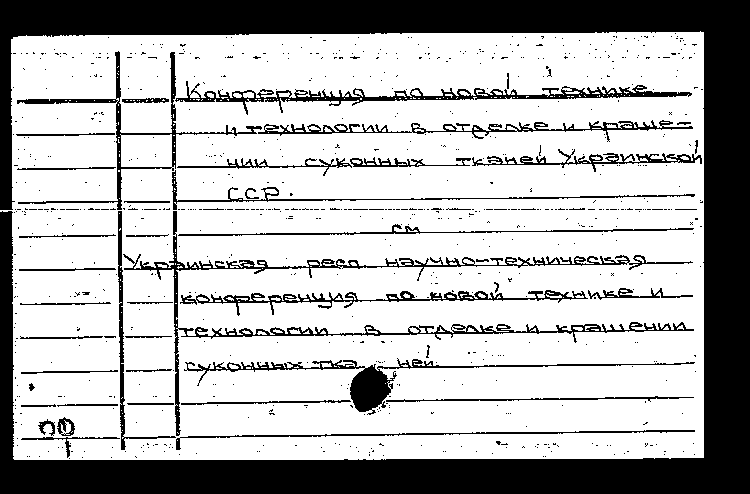 Конференция по новой технике
и технологии в отделке и краше-
нии суконных тканей Украинской
ССР.
см
Украинская респ. научно-техническая
конференция по новой технике и
технологии в отделке и крашении
суконных тка ней.